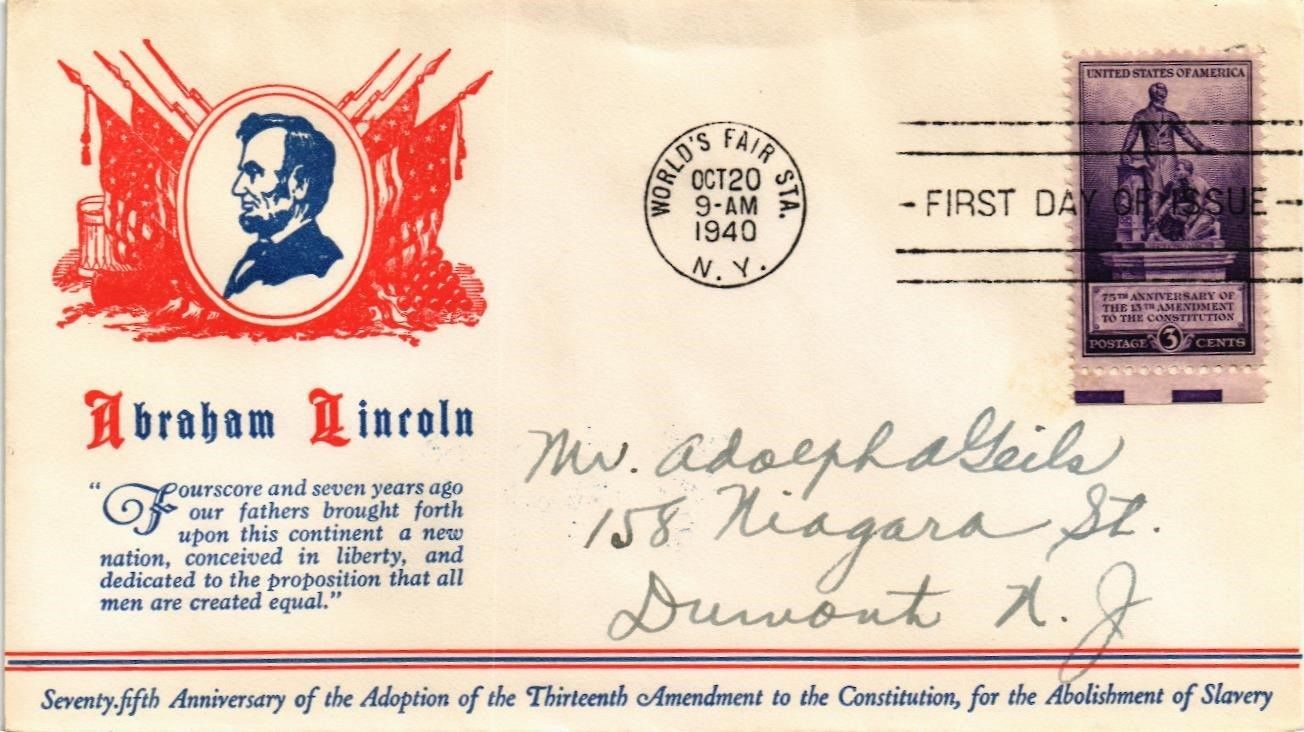 UNITED STATES OF AMERICA
WORLD'S FAIR STA.
OCT 20
9-AM
1940
N. Y.
FIRST DAY OF ISSUE
75TH ANNIVERSARY OF
THE 13TH AMENDMENT
TO THE CONSTITUTION
POSTAGE 3 CENTS
Abraham Lincoln
"Fourscore and seven years ago
our fathers brought forth
upon this continent a new
nation, conceived in liberty, and
dedicated to the proposition that all
men are created equal."
Mr. Adolph A Geils
158 Niagara St.
Dumont N. J
Seventy-fifth Anniversary of the Adoption of the Thirteenth Amendment to the Constitution, for the Abolishment of Slavery